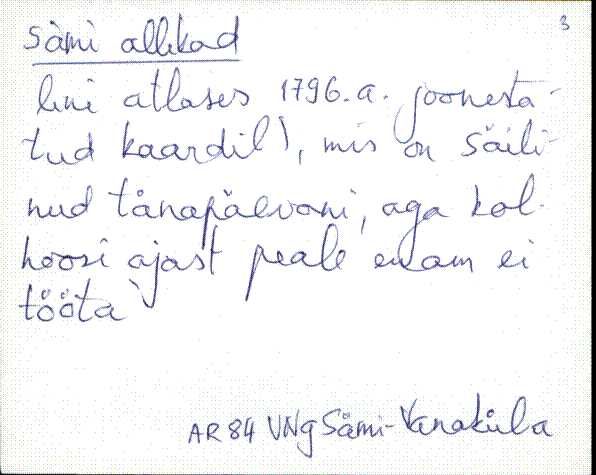 3
Sämi allikad
lini atlases 1796.a. joonesta-
tud kaardil), mis on säili-
nud tänapäevani, aga kol-
hoosi ajast peale enam ei
tööta
AR 84 VNg Sämi-Vanaküla